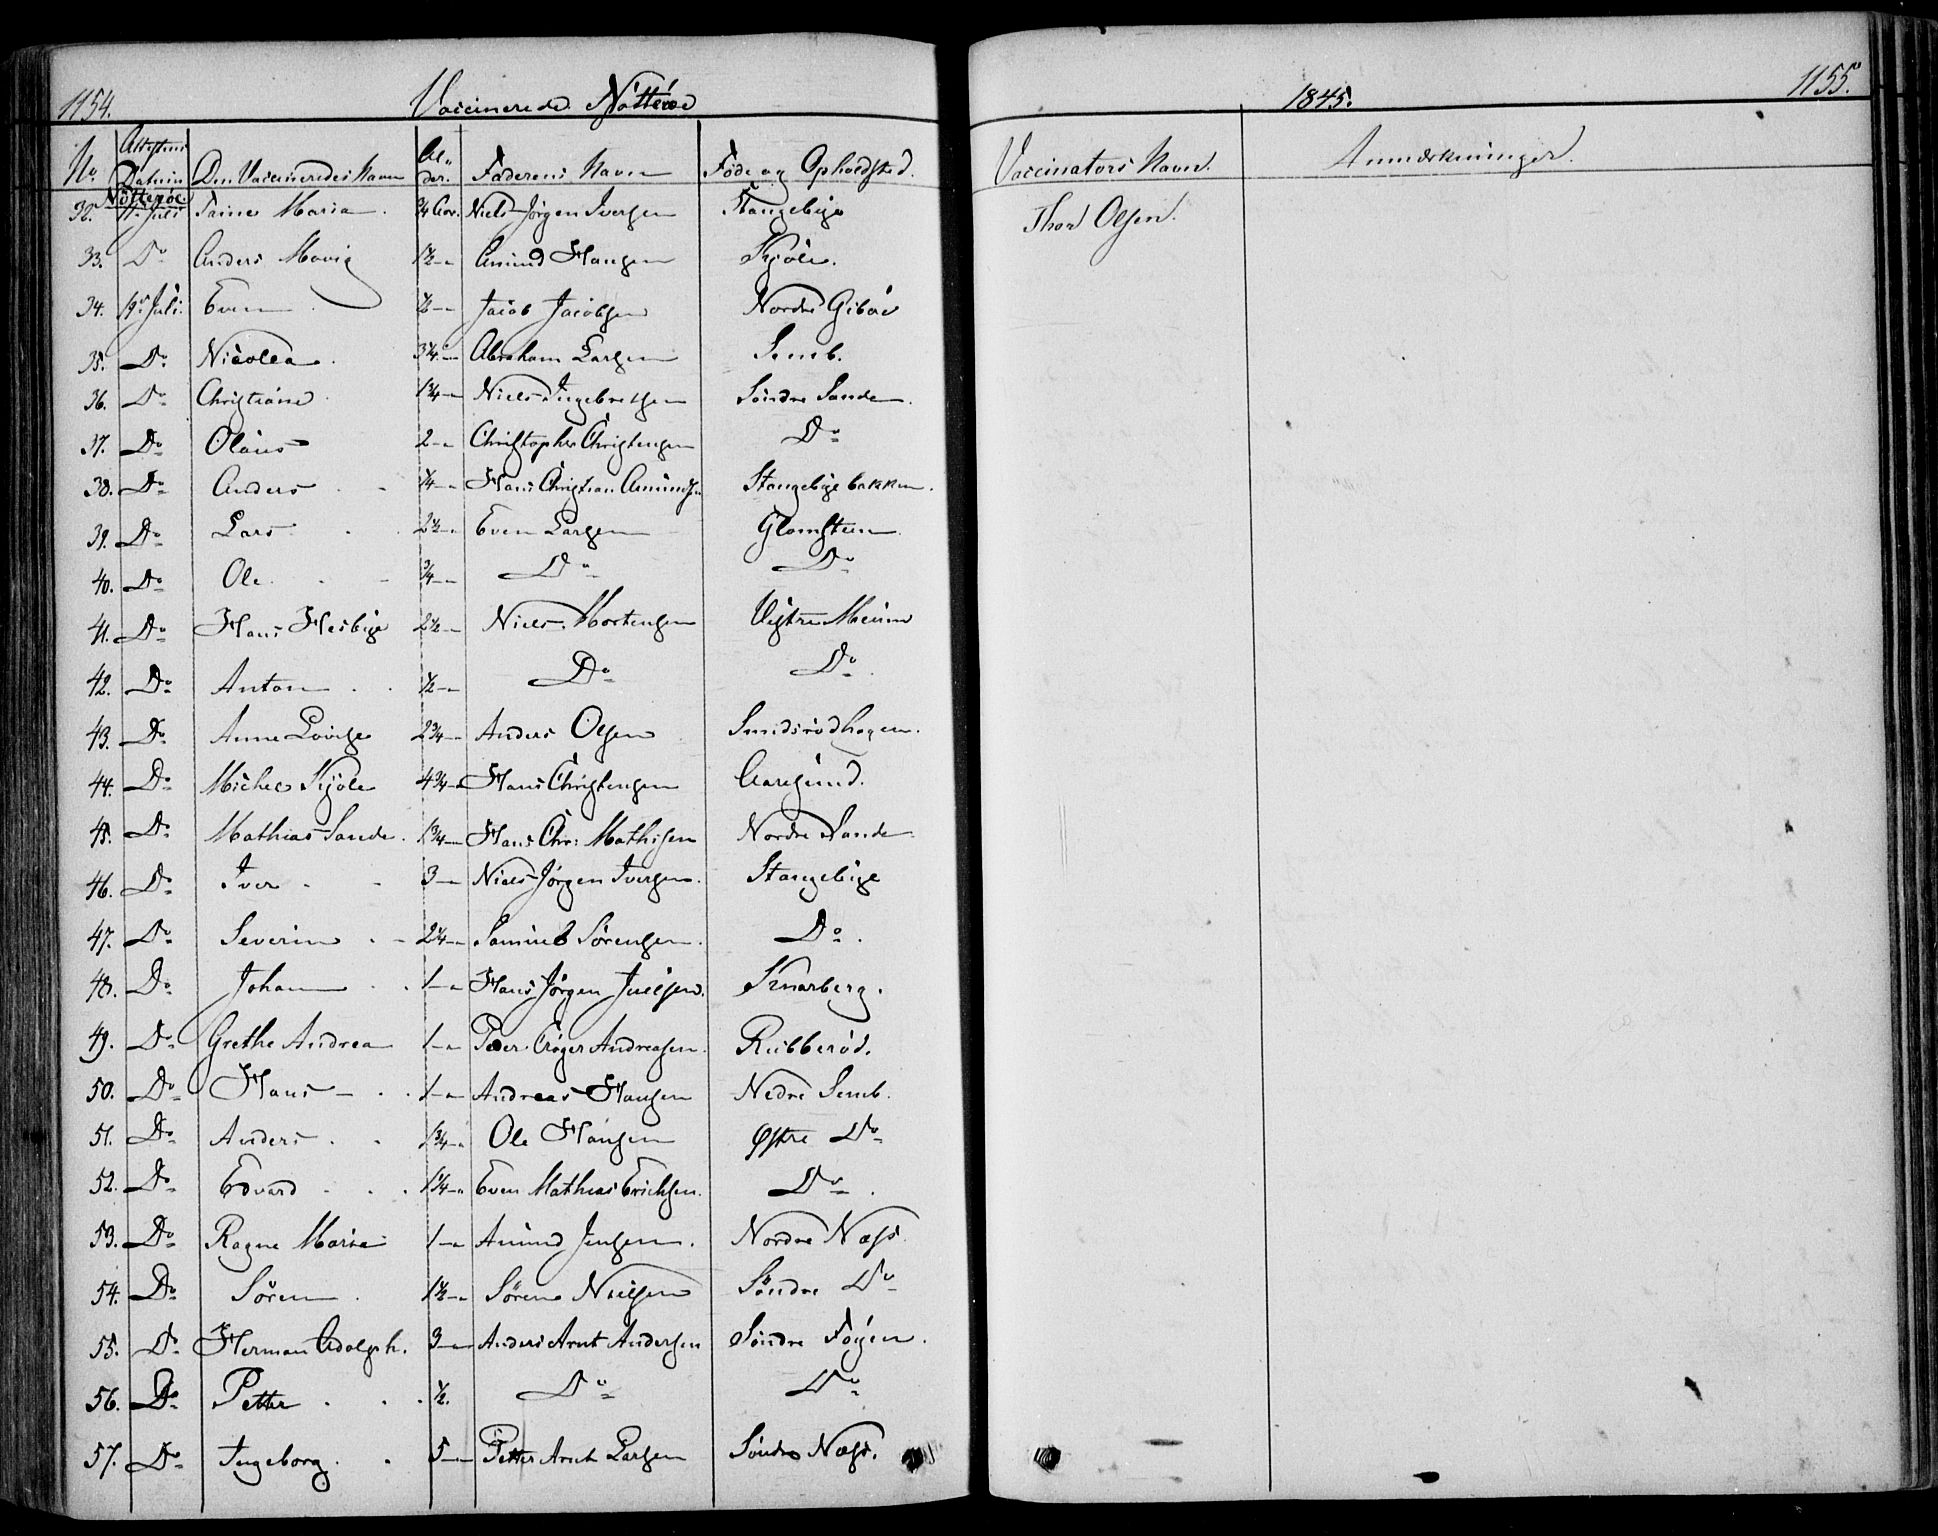 1154. Vaccinerede Nötteröe 1845. 1155.
No. Attestens Datum Den Vaccineredes Navn Alder. Faderens Navn Föde og Opholdsted. Vaccinators Navn. Anmærkninger.
Nötteröe
32. 11te Juli Maria. 3/4 Aar. Niels Jörgen Iversen Stangebÿe Thor Olsen.
33. Do Anders Movig 1½ — Amund Hansen Kjöle.
34. 19de Juli. Even ½ — Jacob Jacobsen Nordre Giböe
35. Do Nicolea 3¼ — Abraham Larsen Semb.
36. Do Christiane 1¾ — Niels Ingebretsen Söndre Sande.
37. Do Olaus 2 — Christopher Christensen Do
38. Do Anders ¼ — Hans Christian Amundsen Stangebÿe bakken.
39. Do Lars 2½ — Even Larsen Glomsteen
40. Do Ole ¾ — Do Do
41. Do Hans Hesbÿe 2½ — Niels Mortensen Vestre Meum
42. Do Anton ½ — Do Do
43. Do Anne Lovise 2¾ — Anders Olsen Smidsrödhagen.
44. Do Michel Kjöle 4¾ — Hans Christensen Aaresund.
45. Do Mathias Sande 1¾ — Hans Chr: Mathisen Nordre Sande
46. Do Iver 3 — Niels Jörgen Iversen. Stangebÿe
47. Do Severin 2¼ — Samuel Sörensen. Do.
48. Do Johan 1 — Hans Jörgen Juelsen. Knarberg.
49. Do Grethe Andrea 1 — Peder Cröger Andreasen. Rubberöd.
50. Do Hans 1 — Andreas Hansen Nedre Semb.
51. Do Anders 1¾ — Ole Hansen Östre Do
52. Do Edvard 1¼ — Even Mathias Erichsen. Do
53. Do Ragne Maria 1 — Amund Jensen. Nordre Næss
54. Do Sören 1½ — Sören Nielsen Söndre Do
55. Do Herman Adolph. 3 — Anders Arnt Andersen Söndre Föÿen.
56. Do Petter ½. Do Do
57. Do Ingeborg. 5 — Petter Arnt Larsen Söndre Næss.